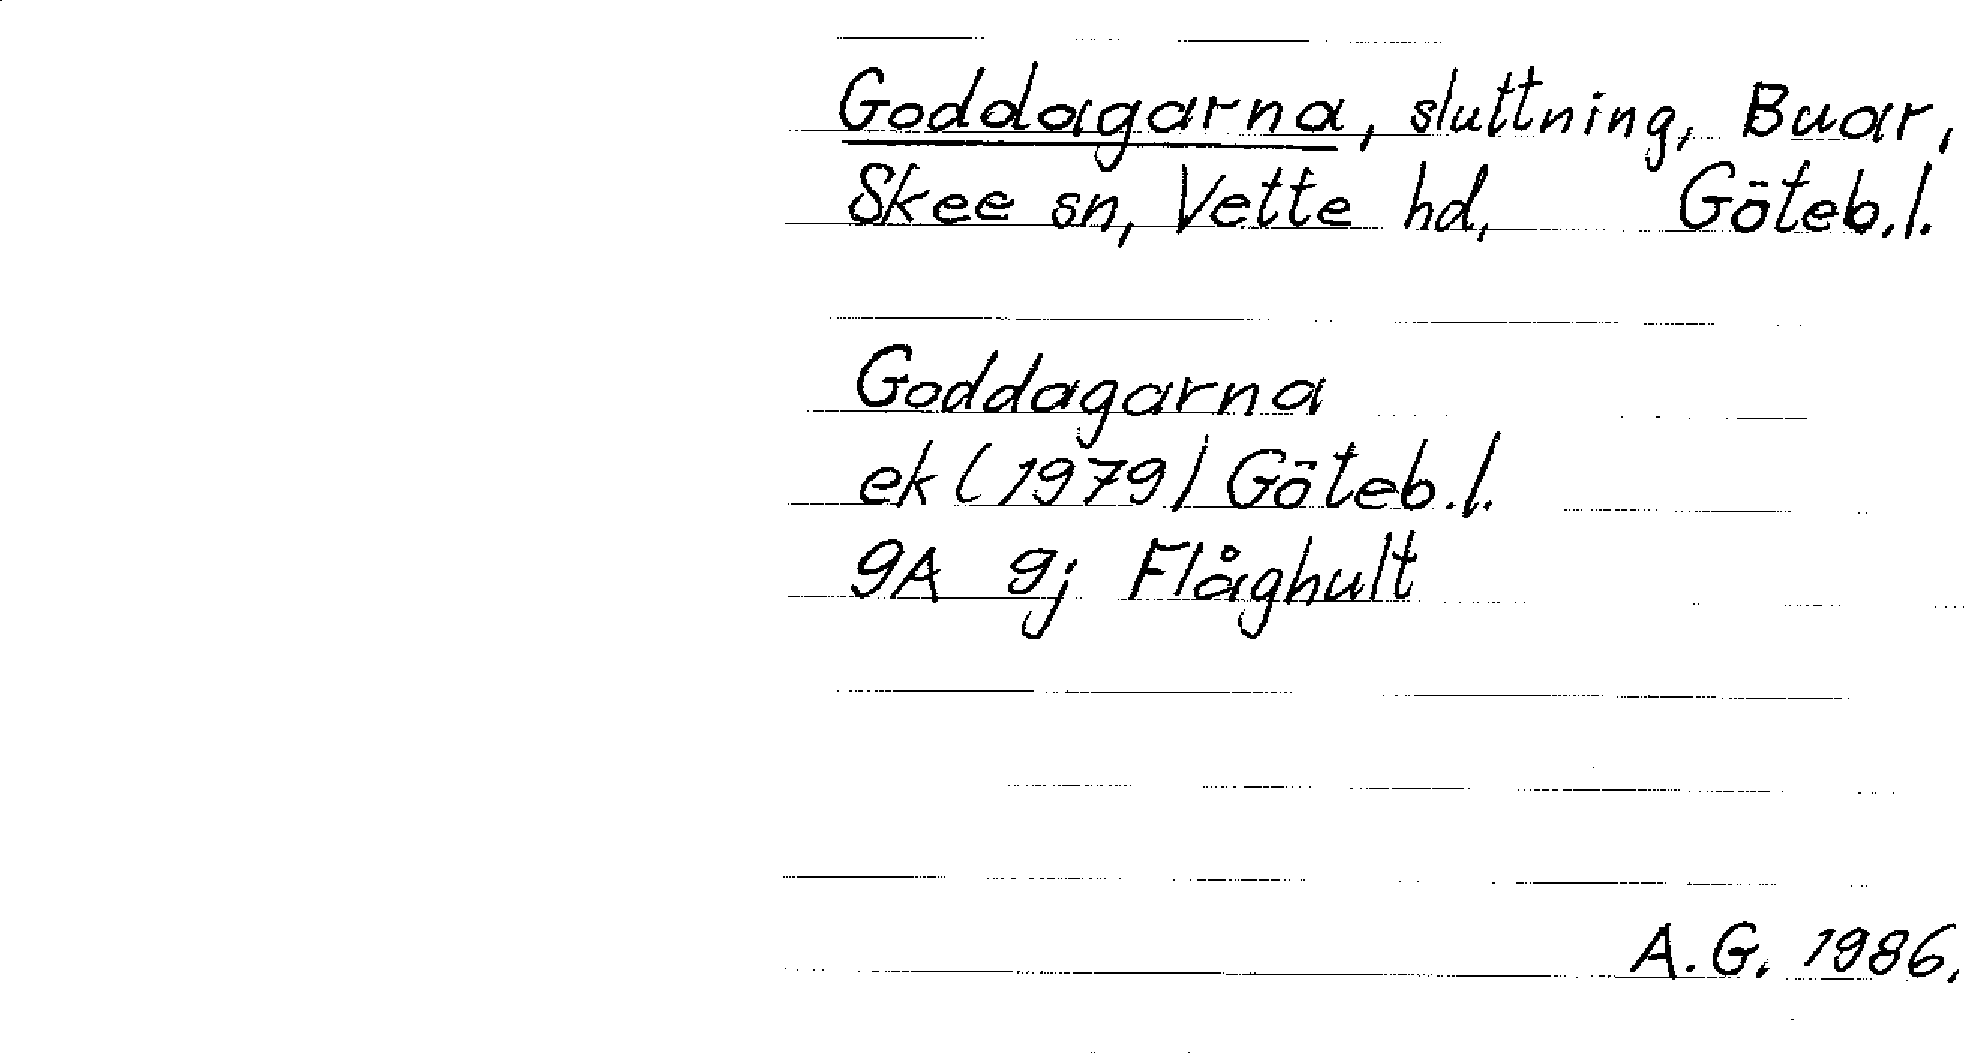 Goddagarna, sluttning, Buar,
Skee sn, Vette hd, Göteb.l.
Goddagarna
ek (1979) Göteb.l.
9A 9j Flåghult
A.G. 1986.